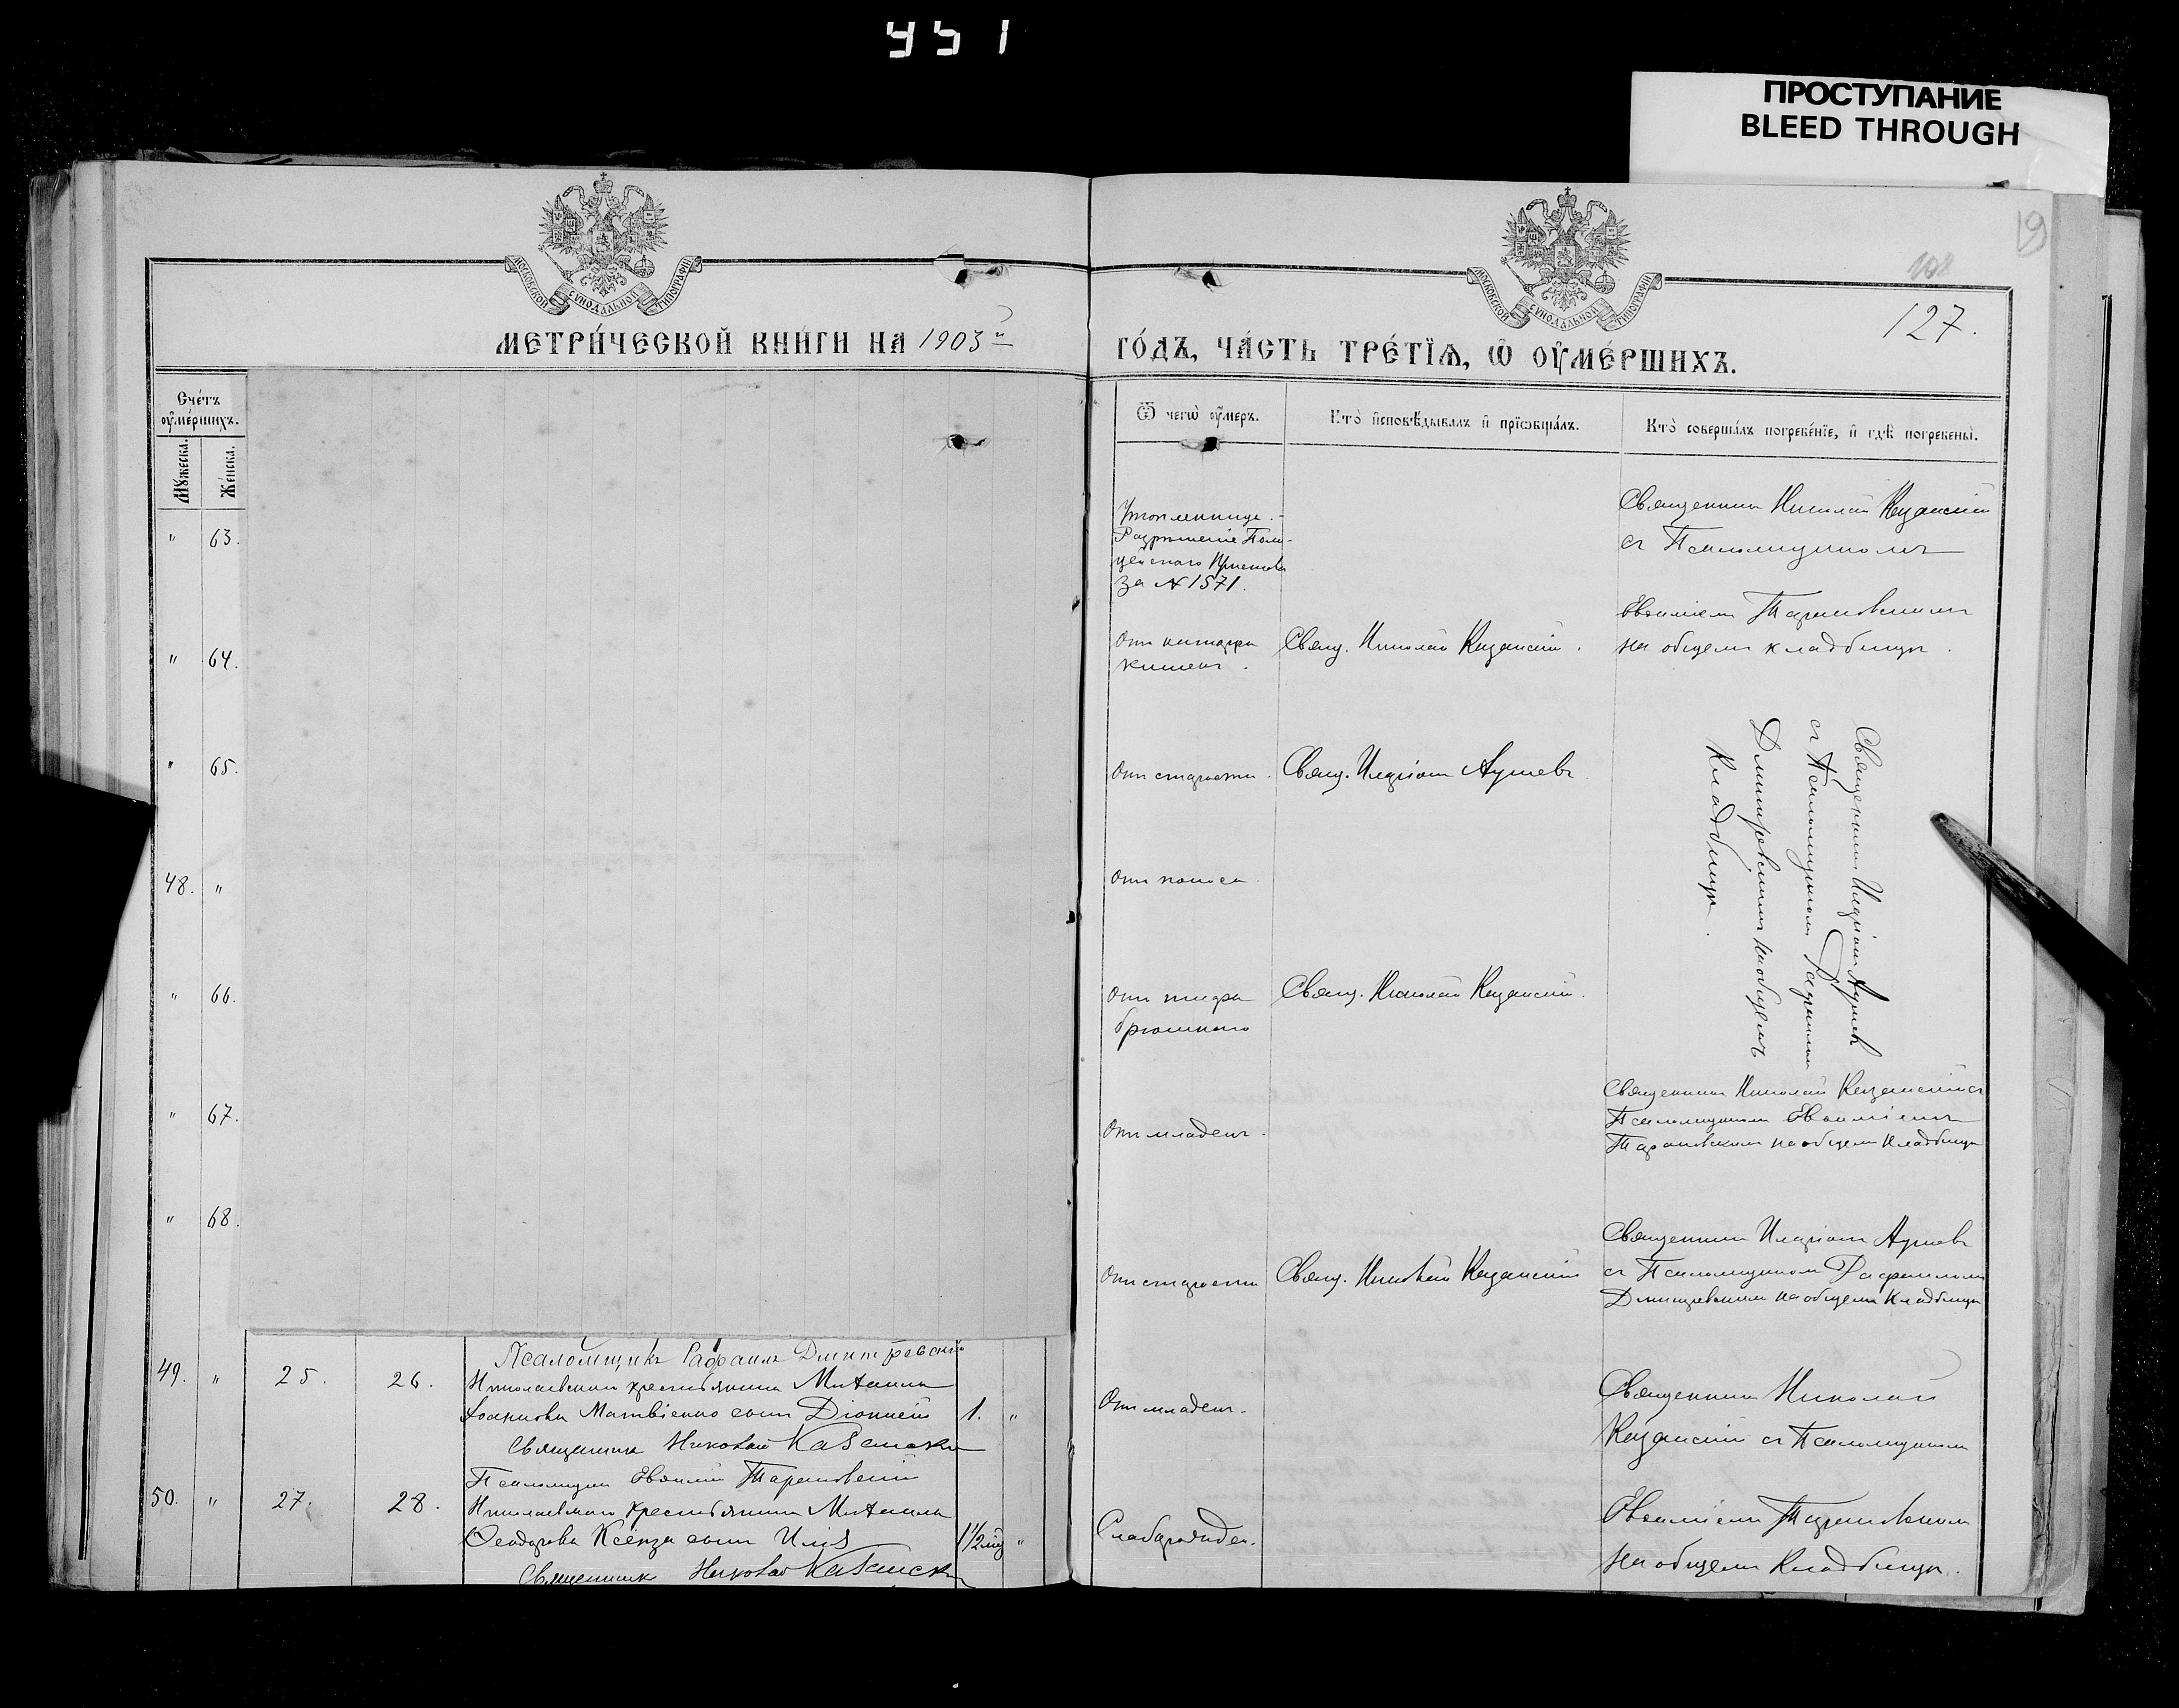 451
ПРОСТУПАНИЕ
BLEED THROUGH
19
108
127.
МОСКОВСКОЙ СѴНОДАЛЬНОЙ ТИПОГРАФІИ
МЕТРИ́ЧЕСКОЙ КНИ́ГИ НА 1903й
Сче́тъ
ᲂу҆ме́ршихъ.
Мꙋ́жеска.
Же́нска.
" 63.
" 64.
" 65.
48. "
" 66.
" 67.
" 68.
Псаломщикъ Рафаилъ Дмитровскій
49. " 25. 26. Николаевскаго крестьянина Михаила
Іоаннова Матвіенко сынъ Діонисій 1. "
Священникъ Николай Казанскій
Псаломщикъ Евѳимій Тарановскій
50. " 27. 28. Николаевскаго крестьянина Михаила
Ѳеодорова Ксёнза сынъ Илія 1½ мѣ "
Священникъ Николай Казанскій
МОСКОВСКОЙ СѴНОДАЛЬНОЙ ТИПОГРАФІИ
ГО́ДЪ, ЧА́СТЬ ТРЕ́ТЇѦ, Ѡ ОУМЕ́РШИХЪ.
Ѿ чегѡ̀ ᲂу҆́меръ.
Кто̀ и҆сповѣ́дывалъ и҆ прїѡбща́лъ.
Кто̀ соверша́лъ погребе́нїе, и҆ гдѣ̀ погребены̀.
Утопленница.-
Разрѣшеніе Поли-
цейскаго Пристава
за № 1571.
Священникъ Николай Казанскій
съ Псаломщикомъ
Евѳиміемъ Тарановскимъ
на общемъ кладбищѣ.
Отъ катарра
кишекъ.
Свящ. Николай Казанскій.
Отъ старости. Свящ. Иларіонъ
Отъ поноса
Священникъ Иларіонъ
съ Псаломщикомъ Рафаиломъ
Дмитровскимъ на общемъ
Кладбищѣ.
Отъ тифа
брюшного
Свящ. Николай Казанскій.
Отъ младен.
Священникъ Николай Казанскій съ
Псаломщикомъ Евѳиміемъ
Тарановскимъ на общемъ Кладбищѣ
Отъ старости Свящ. Николай Казанскій
Священникъ Иларіонъ
съ Псаломщикомъ Рафаиломъ
Дмитровскимъ на общемъ Кладбищѣ
Отъ младен.
Священникъ Николай
Казанскій съ Псаломщикомъ
Слаборожден.
Евѳиміемъ Тарановскимъ
на общемъ Кладбищѣ.